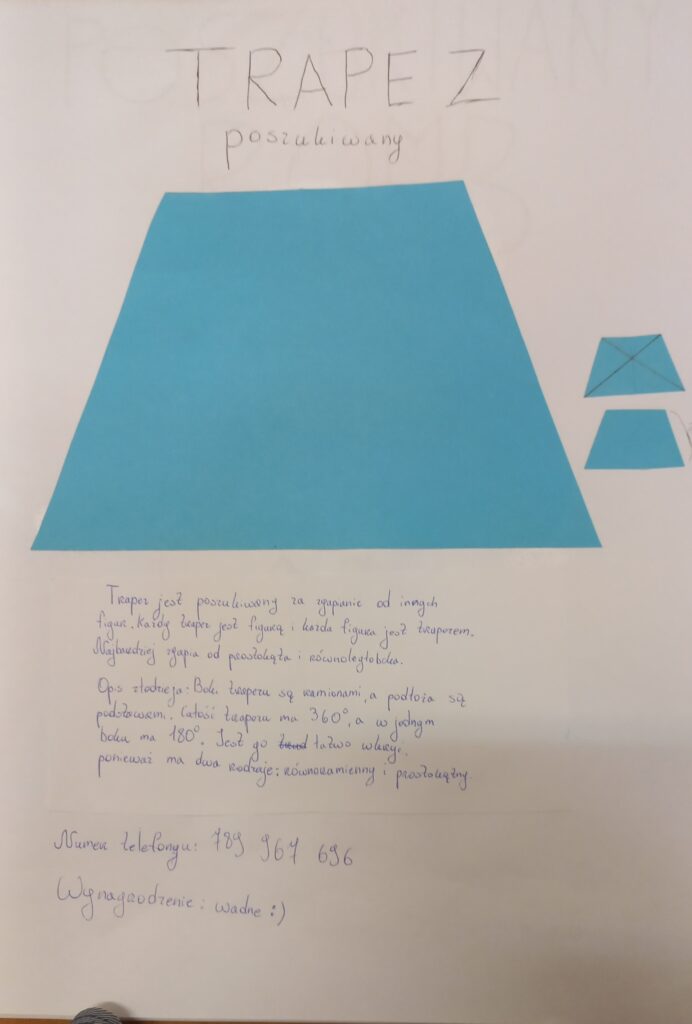 TRAPEZ
poszukiwany
Trapez jest poszukiwany za zgapianie od innych
figur. Każdy trapez jest figurą i każda figura jest trapezem.
Najbardziej zgapia od prostokąta i równoległoboku.
Opis złodzieja: Boki trapezu są ramionami, a podłoża są
podstawami. Całość trapezu ma 360°, a w jednym
boku ma 180°. Jest go łatwo wkryć.
ponieważ ma dwa rodzaje: równoramienny i prostokątny
Numer telefonu: 789 967 696
Wynagrodzenie: wadne :)